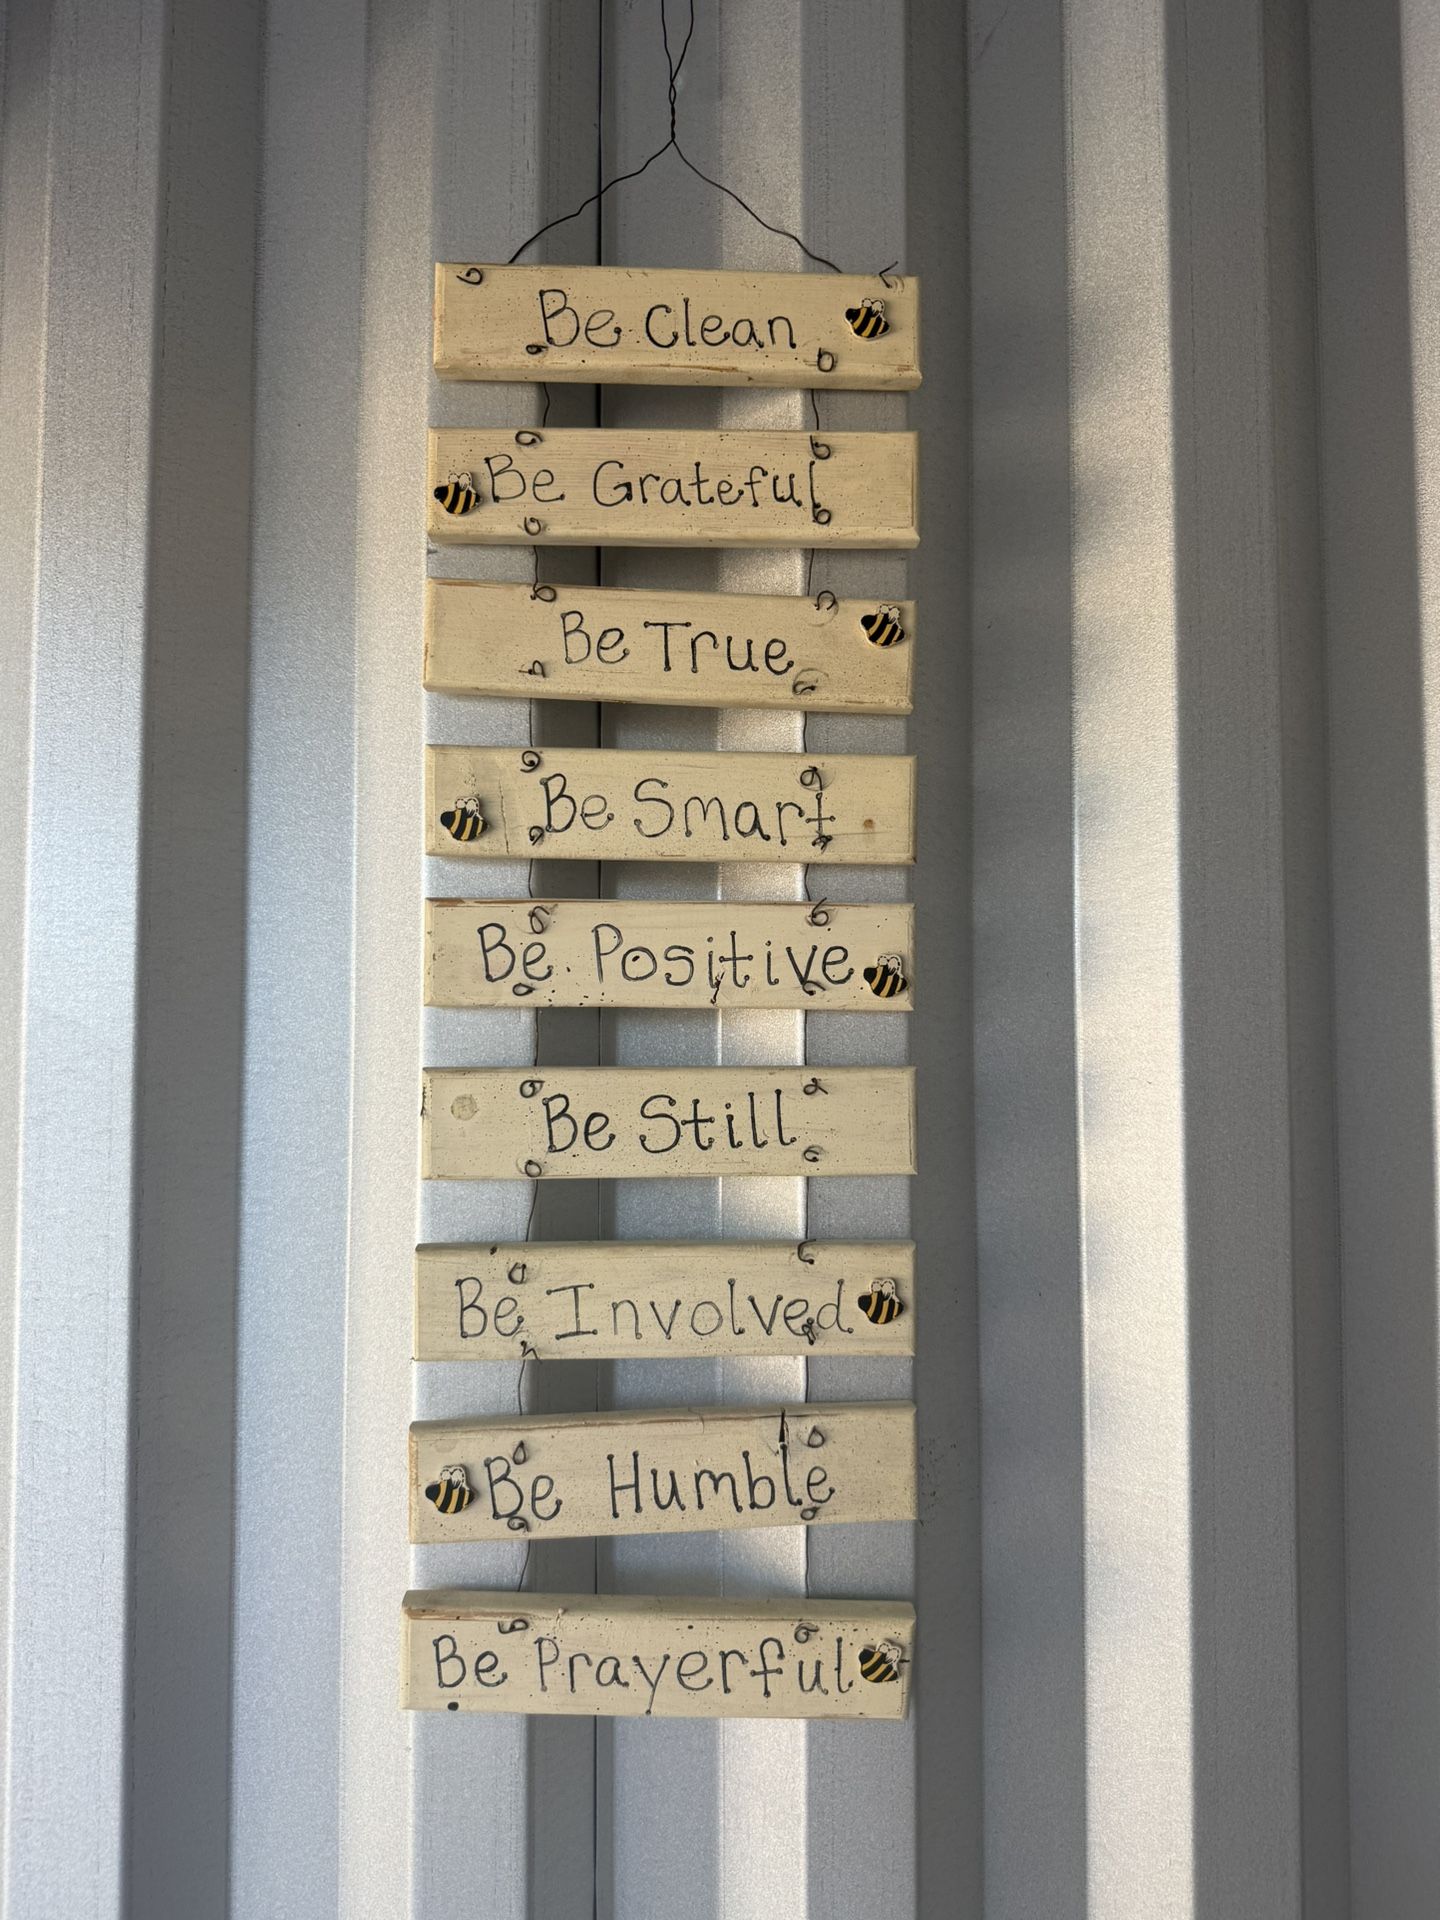 Be Clean
Be Grateful
Be True
Be Smart
Be Positive
Be Still
Be Involved
Be Humble
Be Prayerful